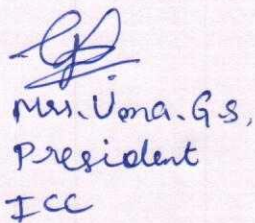 Mrs. Uma. G.S,
President
ICC